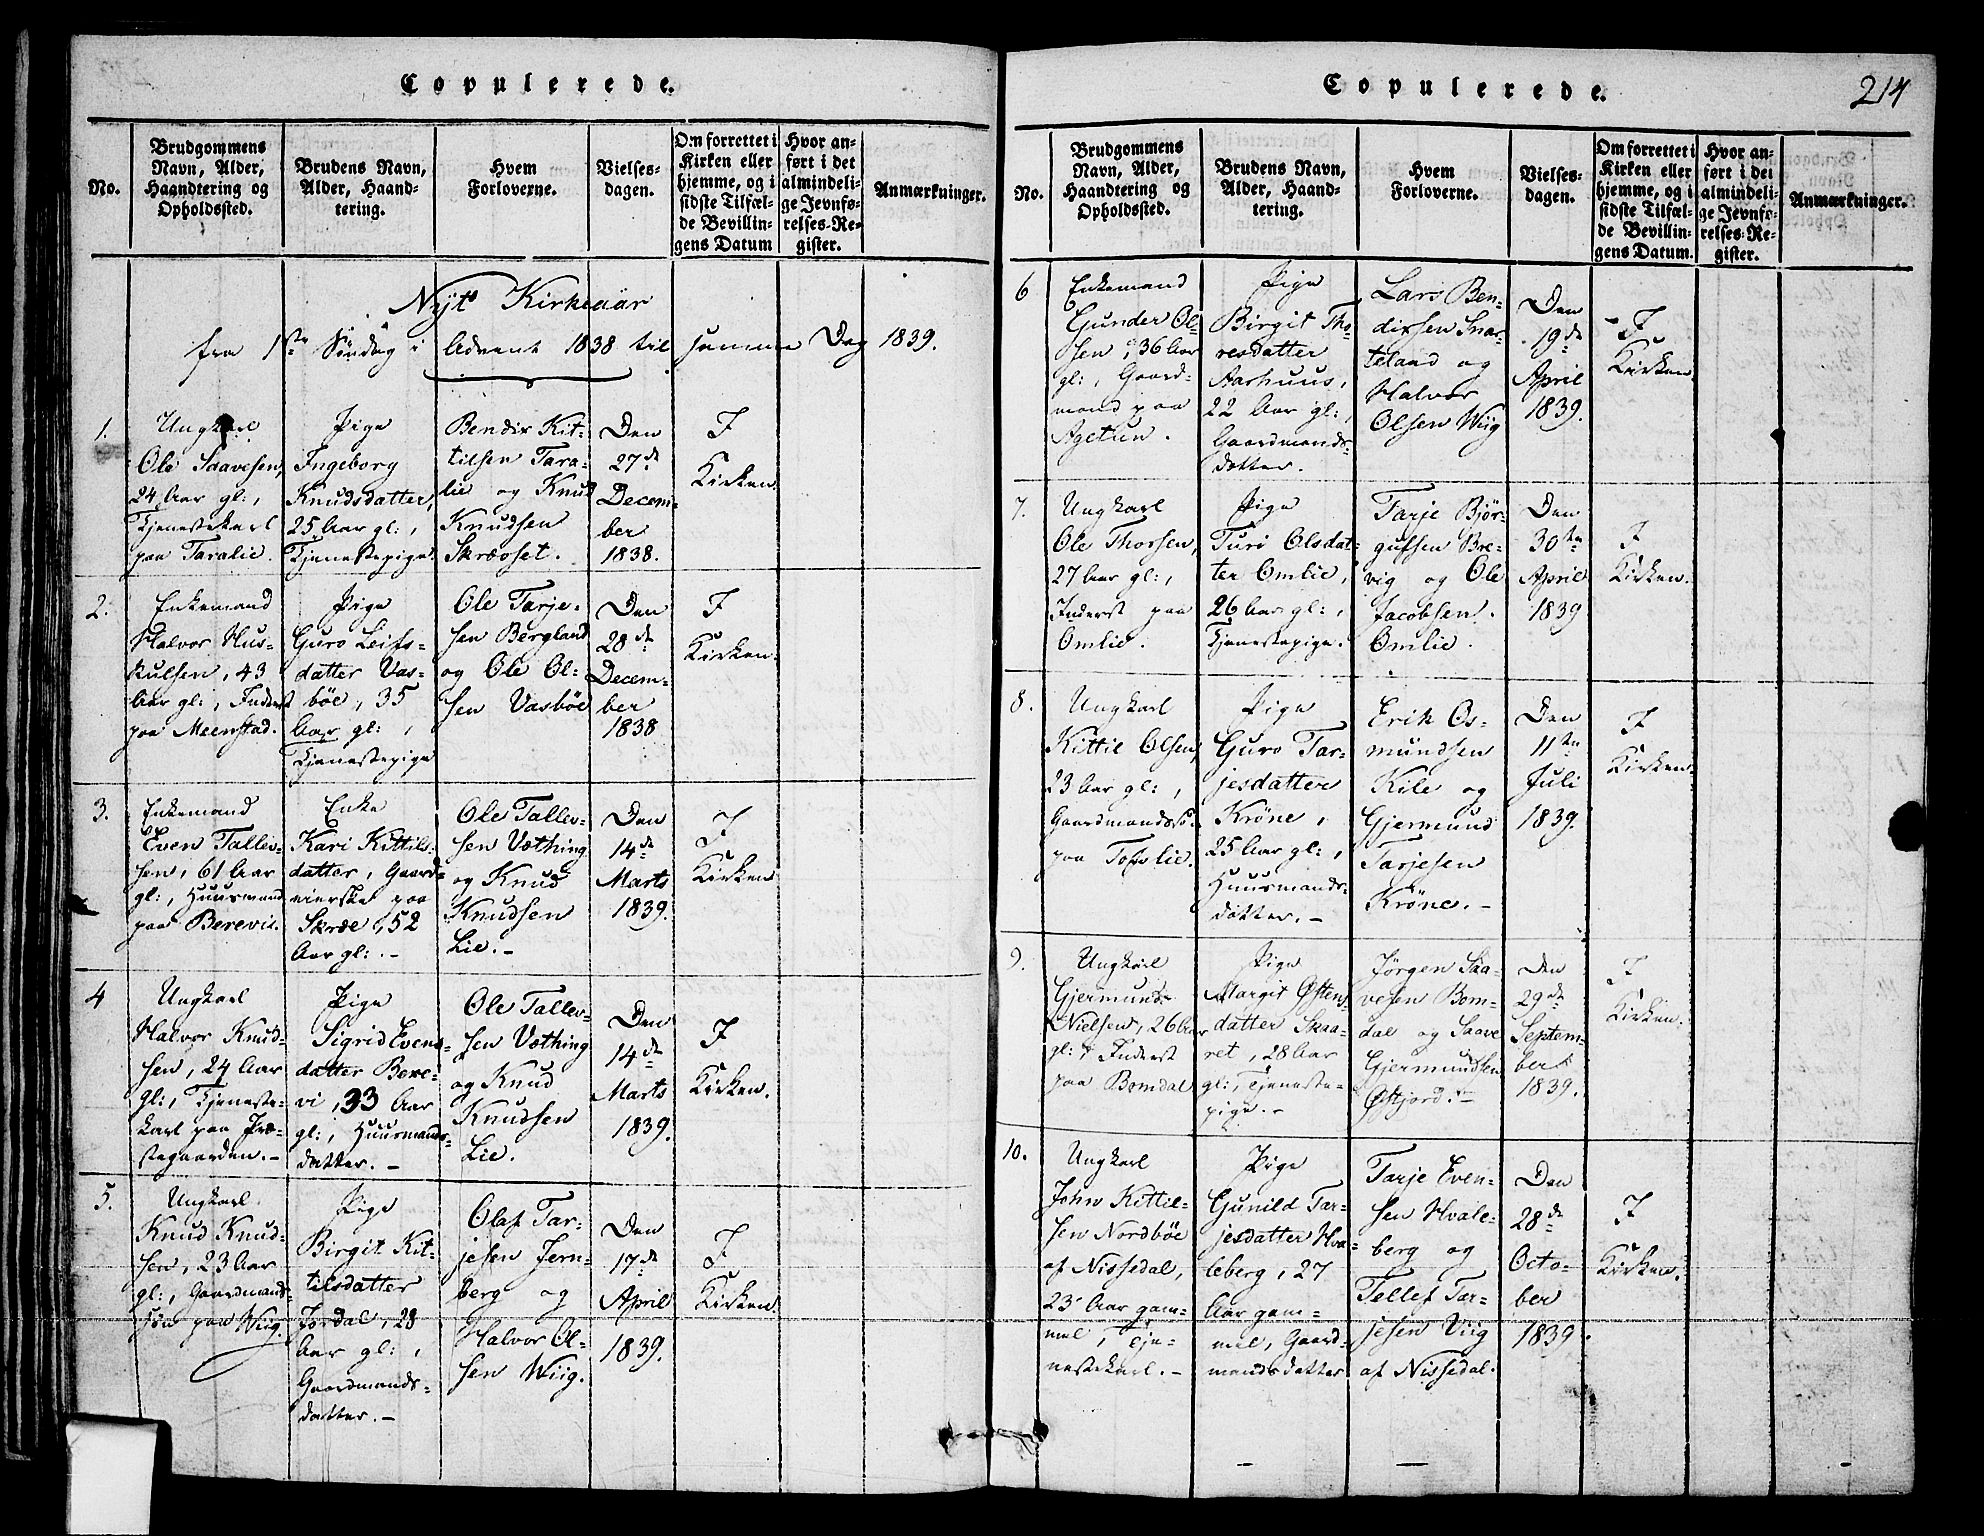 Copulerede.
No.
Brudgommens
Navn, Alder,
Haandtering og
Opholdssted.
Brudens Navn,
Alder, Haand-
tering.
Hvem
Forloverne.
Vielses-
dagen.
Om forrettet i
Kirken eller
hjemme, og i
sidste Tilfæl-
de Bevillin-
gens Datum
Hvor an-
ført i det
almindeli-
ge Jevnfø-
relses-Re-
gister.
Anmærkninger.
Nyt Kirkeaar
fra 1ste Søndag i Advent 1838 til samme Dag 1839.
1.
Ungkarl
Ole Saavesen,
24 Aar gl:,
Tjenestekarl
paa Taralie.
Pige
Ingeborg
Knudsdatter,
25 Aar gl:,
Tjenestepige
Bendix Kit-
tilsen Tara-
lie og Knud
Knudsen
Skræoset.
Den
27de
Decem-
ber
1838.
I
Kirken.
2.
Enkemand
Halvor Hus-
kulsen, 43
Aar gl:, Inderst
paa Meenstad.
Pige
Guro Leifs-
datter Vas-
böe, 35
Aar gl:,
Tjenestepige
Ole Tarje-
sen Bergland
og Ole Ol-
sen Vasböe
Den
28de
Decem-
ber
1838
I
Kirken.
3.
Enkemand
Even Tallev-
sen, 61 Aar
gl:, Huusmand
paa Berevii.
Enke
Kari Kittils-
datter, Gaard-
eierske paa
Skræe, 52
Aar gl:. –
Ole Tallev-
sen Væthing
og Knud
Knudsen
Lie. –
Den
14de
Marts
1839.
I
Kirken
4
Ungkarl
Halvor Knud-
sen, 24 Aar
gl:, Tjeneste-
karl paa Præ-
stegaarden. –
Pige
Sigrid Evens-
datter Bere-
vi, 33 Aar
gl:, Huusmands-
datter. –
Ole Tallev-
sen Væthing
og Knud
Knudsen
Lie.
Den
14de
Marts
1839.
I
Kirken.
5.
Ungkarl
Knud Knud-
sen, 23 Aar
gl:, Gaardmands-
søn paa Wiig.
Pige
Birgit Kit-
tilsdatter
Jordal, 28
Aar gl:,
Gaardmands-
datter. –
Olaf Tar-
jesen Jern-
berg og
Halvor Ol-
sen Wiig.
Den
17de
April
1839.
I
Kirken.
Copulerede.
214
No.
Brudgommens
Navn, Alder,
Haandtering og
Opholdssted.
Brudens Navn,
Alder, Haand-
tering.
Hvem
Forloverne.
Vielses-
dagen.
Om forrettet i
Kirken eller
hjemme, og i
sidste Tilfæl-
de Bevillin-
gens Datum.
Hvor an-
ført i det
almindeli-
ge Jevnfø-
relses-Re-
gister.
Anmærkninger.
6
Enkemand
Gunder Ol-
sen, 36 Aar
gl:, Gaard-
mand paa
Agetun.
Pige
Birgit Tho-
resdatter
Aarhuus,
22 Aar gl:,
Gaardmands-
datter.
Lars Ben-
dixsen Snar-
teland og
Halvor
Olsen Wiig
Den
19de
April
1839.
I
Kirken.
7.
Ungkarl
Ole Thorsen,
27 Aar gl:,
Inderst paa
Omlie.
Pige
Turi Olsdat-
ter Omlie,
26 Aar gl:,
Tjenestepige.
Tarje Bjør-
gufsen Bre-
vig og Ole
Jacobsen
Omlie.
Den
30te
April
1839
I
Kirken.
8.
Ungkarl
Kittil Olsen,
23 Aar gl:,
Gaardmandssø.
paa Toflie.
Pige
Guro Tar-
jesdatter
Kröne,
25 Aar gl:,
Huusmands-
datter. –
Erik Os-
mundsen
Kile og
Gjermund
Tarjesen
Kröne. –
Den
11te
Juli
1839.
I
Kirken.
9.
Ungkarl
Gjermund
Nielsen, 26 Aar
gl:, Inderst
paa Bomdal
Pige
Margit Østens-
datter Skaa-
ret, 28 Aar
gl:, Tjeneste-
pige. –
Jørgen Saa-
vesen Bom-
dal og Saave
Gjermundsen
Østjord. –
Den
29de
Septem-
ber
1839.
I
Kirken.
10.
Ungkarl
John Kittil-
sen Nordböe
af Nissedal,
23 Aar gam-
mel, Tje-
nestekarl. –
Pige
Gunild Tar-
jesdatter Hva-
leberg, 27
Aar gam-
mel, Gaard-
mandsdatter
Tarje Even-
sen Hvale-
berg og
Tellef Tar-
jesen Viig
af Nissedal.
Den
28de
Octo-
ber
1839.
I
Kirken.